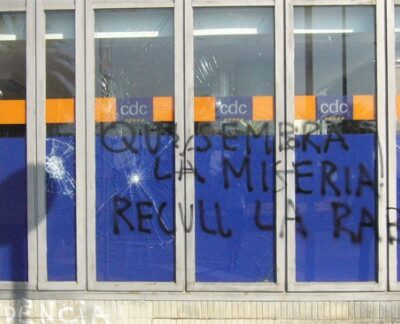 cdc cdc cdc
QUI SEMBRA
LA MISERIA
RECULL LA RAB
DENCIA